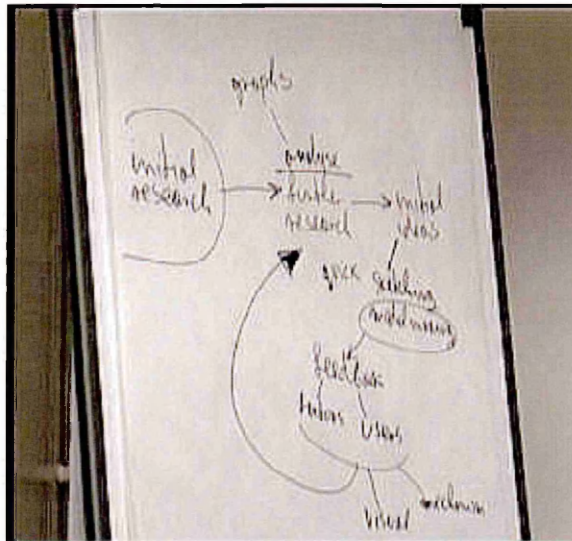 graphs
initial
research
analyse
further
research
initial
ideas
quick sketching
feedback
tutors
users
visual